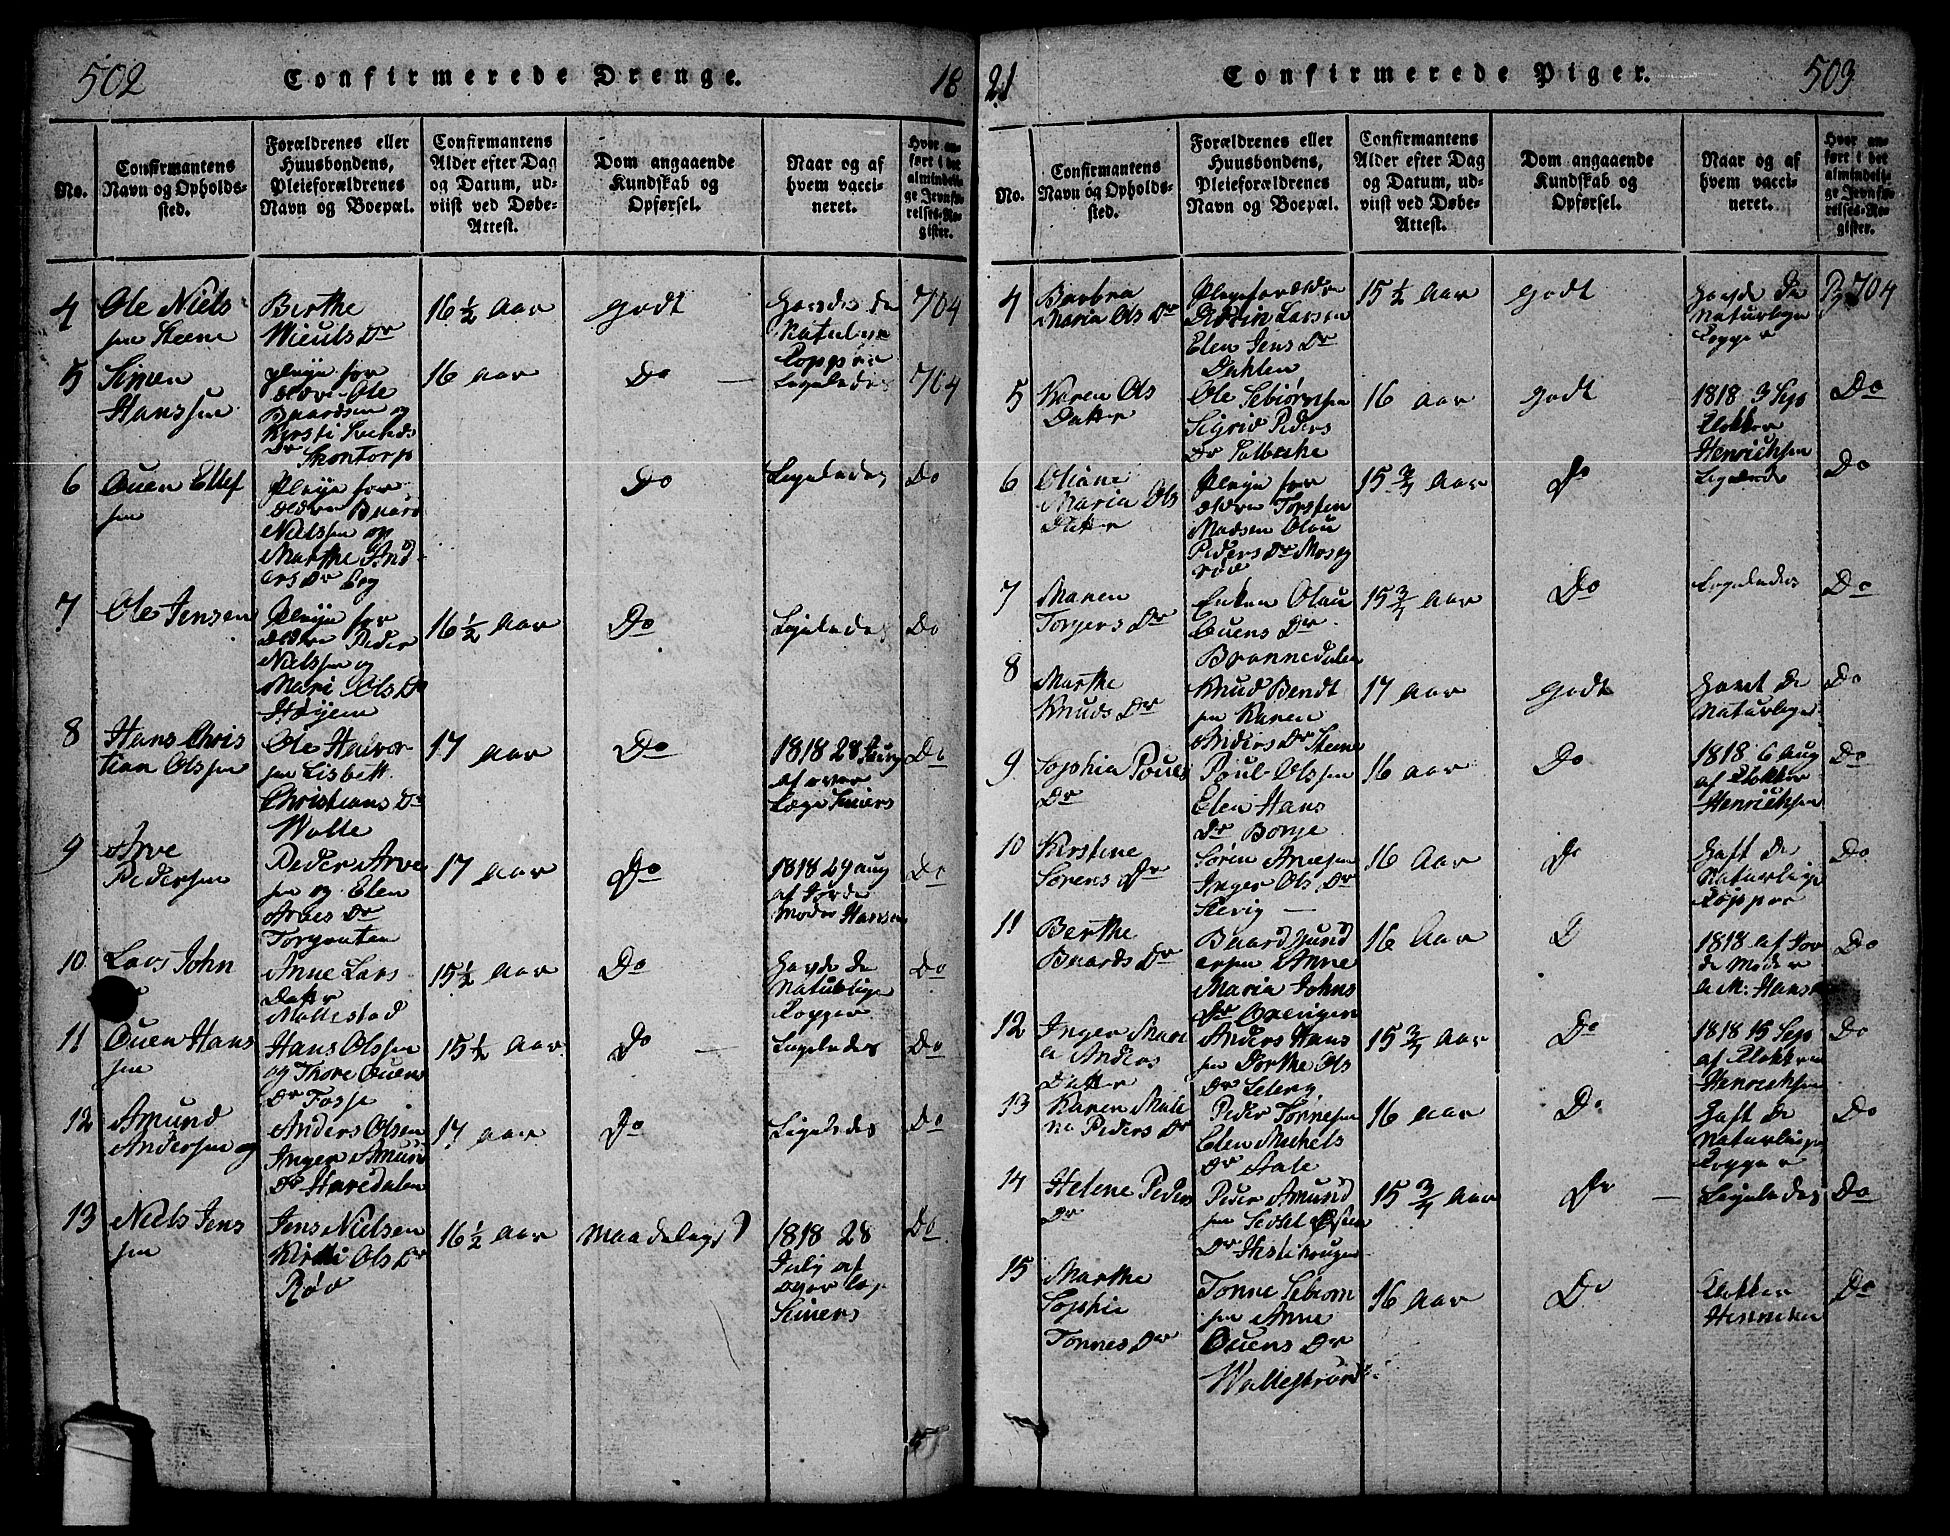 502
Confirmerede Drenge.
18
No.
Confirmantens
Navn og Opholds-
sted.
Forældrenes eller
Huusbondens,
Pleieforældrenes
Navn og Boepæl.
Confirmantens
Alder efter Dag
og Datum, ud-
viist ved Døbe-
Attest.
Dom angaaende
Kundskab og
Opførsel.
Naar og af
hvem vacci-
neret.
Hvor an-
ført i det
almindeli-
ge Jevnfø-
relses-Re-
gister.
4
Ole Niels
sen Steene
Berthe
Dr
16½ Aar
godt
Havde de
Naturlige
Copper
704
5
Simen
Hanssen
pleije for
ældre Ole
Baardsen og
Kirsti
Dr Skontorp
16 Aar
Do
Ligeledes
704
6
Ouen Ellef
sen
Pleije for
ældre Baard
Nielssen og
Marthe And
ers Dr
Do
Ligeledes
Do
7
Ole Jensen
Pleije for
ældre Peder
Nielssen og
Mari Ols Dr
16½ Aar
Do
Ligeledes
Do
8
Hans Chris
tian Olssen
Ole Halvor
sen Lisbett
Christians Dr
Wolle
17 Aar
Do
1818 28 Aug
af over
Læge
Do
9
Arve
Pedersen
Peder Arve
sen og Elen
Arves Dr
17 Aar
Do
1818 29 Aug
af Jorde
Moder Hansen
Do
10
Lars John
Anne Lars
Datter
Mollestad
15½ Aar
Do
Havde de
Naturlige
Copper
Do
11
Ouen Hans
sen
Hans Olssen
og Thore Ouens
Dr Fosse
15½ Aar
Do
Ligeledes
Do
12
Amund
Andersen og
Anders Olsen
Inger Amund
Dr Haredalen
17 Aar
Do
Ligeledes
Do
13
Niels Jens
sen
Jens Nielsen
Kirsti Ols Dr
Röd
16½ Aar
Maadelegt
1818 28
July af
over
Do
21
Confirmerede Piger.
503
No.
Confirmantens
Navn og Opholds-
sted.
Forældrenes eller
Huusbondens,
Pleieforældrenes
Navn og Boepæl.
Confirmantens
Alder efter Dag
og Datum, ud-
viist ved Døbe-
Attest.
Dom angaaende
Kundskab og
Opførsel.
Naar og af
hvem vacci-
neret.
Hvor an-
ført i det
almindeli-
ge Jevnfø-
relses-Re-
gister.
4
Barbra
Maria Ols Dr
Pleieforældre
Larsen
Elen Jens Dr
Dahlen
15½ Aar
godt
Havde de
Naturlige
Copper
704
5
Karen Ols
Datter
Ole Sebiørnsen
Sigrid Peders
Dr
16 Aar
godt
1818 3 Sep
Klokker
Henrichsen
Do
6
Oliane
Maria Ols
Datter
Pleije for
ældre Torsten
Madsen Olau
Peders Dr
15¾ Aar
Do
Ligeleds
Do
7
Maren
Torgers Dr
Enken Olau
Ouens Dr
Brønnedalen
15¾ Aar
Do
Ligeledes
Do
8
Marthe
Knuds Dr
Knud Bendt
sen Karen
Anders Dr Steen
17 Aar
godt
Havt de
Naturlige
Do
9
Sophia Pouls
Dr
Poul Olssen
Elen Hans
Dr Borge
16 Aar
Do
1818 6 Aug
af Klokker
Henrichsen
Do
10
Kirstine
Sørens Dr
Søren Arvesen
Inger Ols Dr
16 Aar
Do
Haft de
Naturlige
Copper
Do
11
Berthe
Baards Dr
Baard Gund
ersen Anne
Maria Johns
Dr
16 Aar
D
1818 af Jor
de Moder
a M: Hansen
Do
12
Inger Mari
a Anders
Datter
Anders Hans
sen Dorthe Ols
Dr
15¾ Aar
Do
1818 15 Sep
af Klokker
Henrichsen
Do
13
Karen Male
na Peders Dr
Peder Tønnesen
Elen Michels
Dr Aale
16 Aar
Do
Haft de
Naturlige
Copper
Do
14
Helene Peders
Dr
Peder Amund
sen
Dr
15¾ Aar
Do
Ligeledes
Do
15
Marthe
Sophie
Tønnes Dr
Tønne Sebiørn
sen Anne
Ouens Dr
16 Aar
Do
Klokker
Do